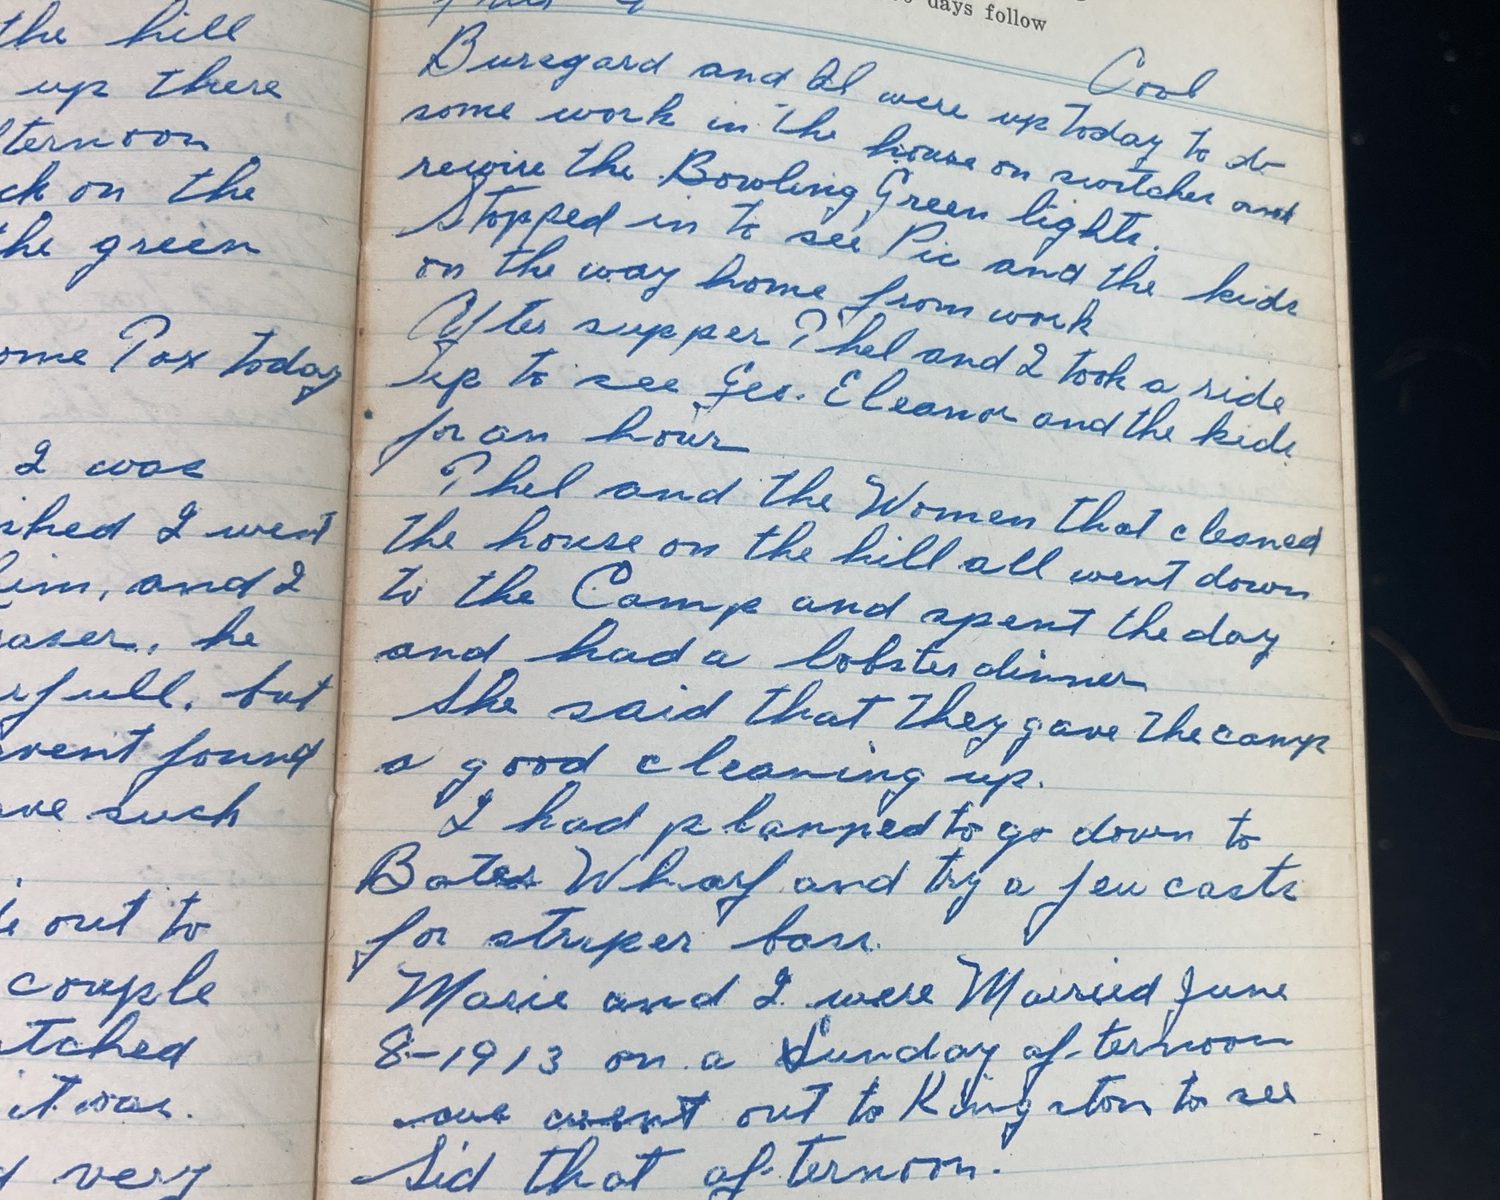 the hill
up there
ternoon
ck on the
the green
ome Pox today
I was
shed I went
him, and I
he
full, but
vent found
ve such
out to
couple
tched
it was.
very
days follow
Cool
Buregard and Al were up today to do
some work in the house on switches and
rewire the Bowling Green lights.
Stopped in to see Pic and the kids
on the way home from work
After supper Phel and I took a ride
up to see Geo. Eleanor and the kids
for an hour
Phel and the Women that cleaned
the house on the hill all went down
to the Camp and spent the day
and had a lobster dinner
She said that they gave the camp
a good cleaning up.
I had planned to go down to
Bates Wharf and try a few casts
for striper bass.
Marie and I were Married June
8-1913 on a Sunday afternoon
we went out to Kingston to see
Sid that afternoon.